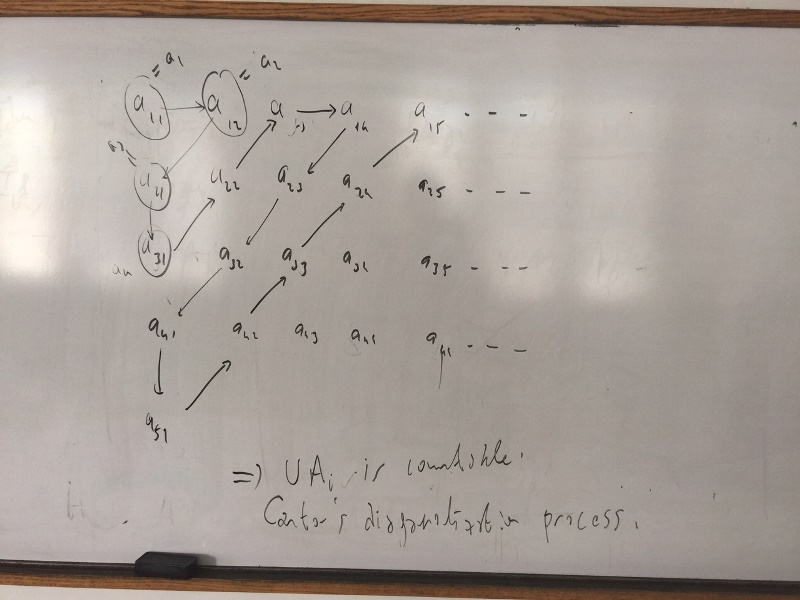 = a₁ = a₂
a₁₁ → a₁₂ a₁₃ → a₁₄ a₁₅ - - -
a₂₁ a₂₂ a₂₃ a₂₄ a₂₅ - - -
a₃₁ a₃₂ a₃₃ a₃₄ a₃₅ - - -
a₄₁ a₄₂ a₄₃ - - -
a₅₁
=> ∪ Aᵢ is countable.
Cantor's diagonalization process.